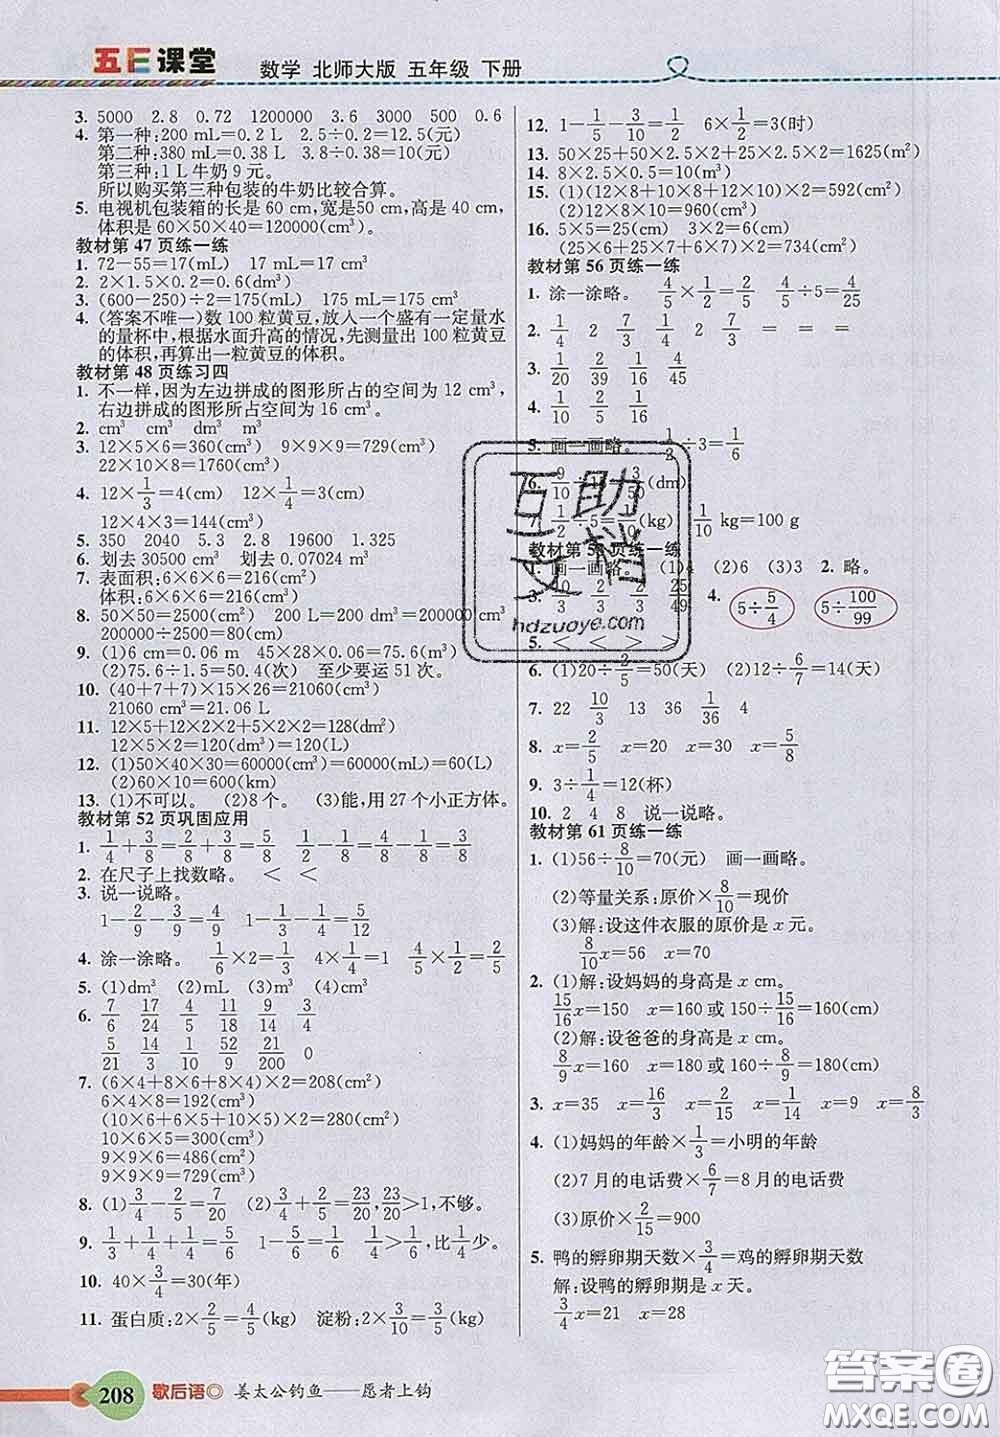 五E课堂 数学 北师大版 五年级 下册
3. 5000 2.8 0.72 1200000 3.6 3000 500 0.6
4. 第一种:200 mL=0.2 L 2.5÷0.2=12.5(元)
第二种:380 mL=0.38 L 3.8÷0.38=10(元)
第三种:1 L牛奶9元。
所以购买第三种包装的牛奶比较合算。
5. 电视机包装箱的长是60 cm,宽是50 cm,高是40 cm,
体积是60×50×40=120000(cm³)。
教材第47页练一练
1. 72-55=17(mL) 17 mL=17 cm³
2. 2×1.5×0.2=0.6(dm³)
3. (600-250)÷2=175(mL) 175 mL=175 cm³
4. (答案不唯一)数100粒黄豆,放入一个盛有一定量水
的量杯中,根据水面升高的情况,先测量出100粒黄豆
的体积,再算出一粒黄豆的体积。
教材第48页练习四
1. 不一样,因为左边拼成的图形所占的空间为12 cm³,
右边拼成的图形所占空间为16 cm³。
2. cm³ cm³ dm³ m³
3. 12×5×6=360(cm³) 9×9×9=729(cm³)
22×10×8=1760(cm³)
4. 12×1/3=4(cm) 12×1/4=3(cm)
12×4×3=144(cm³)
5. 350 2040 5.3 2.8 19600 1.325
6. 划去30500 cm³ 划去0.07024 m³
7. 表面积:6×6×6=216(cm²)
体积:6×6×6=216(cm³)
8. 50×50=2500(cm²) 200 L=200 dm³=200000 cm³
200000÷2500=80(cm)
9. (1)6 cm=0.06 m 45×28×0.06=75.6(m³)
(2)75.6÷1.5=50.4(次) 至少要运51次。
10. (40+7+7)×15×26=21060(cm³)
21060 cm³=21.06 L
11. 12×5+12×2×2+5×2×2=128(dm²)
12×5×2=120(dm³)=120(L)
12. (1)50×40×30=60000(cm³)=60000(mL)=60(L)
(2)60×10=600(km)
13. (1)不可以。 (2)8个。 (3)能,用27个小正方体。
教材第52页巩固应用
1. 1/4+3/8=2/8+3/8=5/8 1-1/6-4/6=5/6-4/6=1/6
2. 在尺子上找数略。 < <
3. 说一说略。
1-2/9-3/9=4/9 1-1/3-1/4=5/12
4. 涂一涂略。 1/6×2=1/3 4×1/4=1 4/5×1/2=2/5
5. (1)dm³ (2)mL (3)m³ (4)cm³
6. 7/6 17/24 4/5 11/18 9/14
5/21 14/3 1/10 52/9 21/20 0
7. (6×4+8×6+4×8)×2=208(cm²)
6×4×8=192(cm³)
(10×6+6×5+10×5)×2=280(cm²)
10×6×5=300(cm³)
9×9×6=486(cm²)
9×9×9=729(cm³)
8. (1)3/4-2/5=7/20 (2)3/4+2/5=23/20,23/20>1,不够。
9. 1/3+1/4+1/4=5/6 1-5/6=1/6 1/6<1/4,比1/4少。
10. 40×3/4=30(年)
11. 蛋白质:2×2/5=4/5(kg) 淀粉:2×3/10=3/5(kg)
12. 1-1/5-3/10=1/2 6×1/2=3(时)
13. 50×25+50×2.5×2+25×2.5×2=1625(m²)
14. 8×2.5×0.5=10(m³)
15. (1)(12×8+10×8+12×10)×2=592(cm²)
(2)12×8×10=960(cm³)
16. 5×5=25(cm) 25+2=27(cm)
(25×6+25×7+6×7)×2=734(cm²)
教材第56页练一练
1. 涂一涂略。 4/5×1/2=2/5 4/5÷5=4/25
2. 1/4 2 7/3 2 7/3 = = =
3. 1/20 2/39 1/16 4/45
4. 1/10 2/5 3/16
5. 画一画略。 1/2÷3=1/6
6. 9/10 3/50(dm)
7. 1/2÷5=1/10(kg) 1/10 kg=100 g
教材第5 页练一练
1. 画一画略。 (1)4 (2)6 (3)3 2. 略。
3. 10/3 2/3 2/3 25/49 4. 5÷5/4 5÷100/99
5. < < > >
6. (1)20÷2/5=50(天) (2)12÷6/7=14(天)
7. 22 10/3 13 36 1/36 4
8. x=2/5 x=20 x=30 x=5/8
9. 3÷1/4=12(杯)
10. 2 4 8 说一说略。
教材第61页练一练
1. (1)56÷8/10=70(元) 画一画略。
(2)等量关系:原价×8/10=现价
(3)解:设这件衣服的原价是x元。
8/10x=56 x=70
2. (1)解:设妈妈的身高是x cm。
15/16x=150 x=160或150÷15/16=160(cm)
(2)解:设爸爸的身高是x cm。
8/9x=160 x=180或160÷8/9=180(cm)
3. x=35 x=16/3 x=2/15 x=1/14 x=9 x=8/3
4. (1)妈妈的年龄×1/3=小明的年龄
(2)7月的电话费×6/7=8月的电话费
(3)原价×2/15=900
5. 鸭的孵卵期天数×3/4=鸡的孵卵期天数
解:设鸭的孵卵期是x天。
3/4x=21 x=28
互助文档
hdzuoye.com
208 歇后语◎ 姜太公钓鱼——愿者上钩
答案圈
MXQE.COM